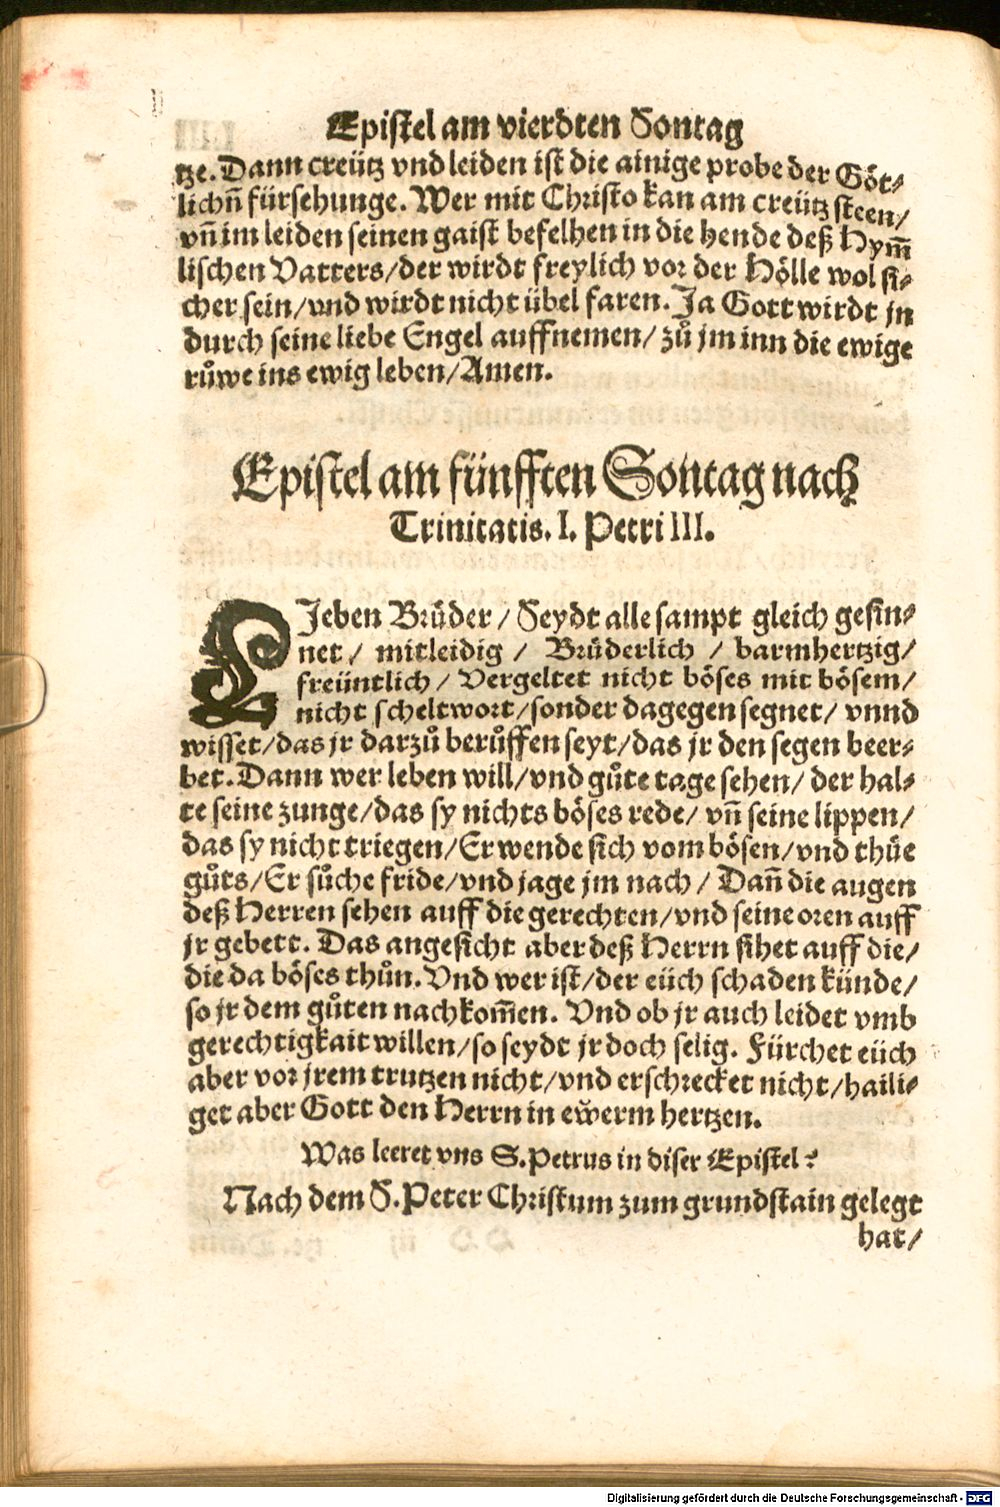 Epistel am vierdten Sontag
tze. Dann creütz vnd leiden ist die ainige probe der Göt⸗
lichñ fürsehunge. Wer mit Christo kan am creütz steen/
vñ im leiden seinen gaist befelhen in die hende deß Hym̃
lischen Vatters/der wirdt freylich vor der Hölle wol si⸗
cher sein/vnd wirdt nicht übel faren. Ja Gott wirdt jn
durch seine liebe Engel auffnemen/ zů jm inn die ewige
růwe ins ewig leben/Amen.
Epistel am fünfften Sontag nach
Trinitatis. I. Petri III.
LJeben Brůder / Seydt alle sampt gleich gesin⸗
net / mitleidig / Brüderlich / barmhertzig/
freüntlich / Vergeltet nicht böses mit bösem/
nicht scheltwort/sonder dagegen segnet/ vnnd
wisset/das jr darzů berůffen seyt/das jr den segen beer⸗
bet. Dann wer leben will/vnd gůte tage sehen/ der hal⸗
te seine zunge/das sy nichts böses rede/ vñ seine lippen/
das sy nicht triegen/Er wende sich vom bösen/vnd thüe
gůts/Er sůche fride/vnd jage jm nach / Dañ die augen
deß Herren sehen auff die gerechten/vnd seine oren auff
jr gebett. Das angesicht aber deß Herrn sihet auff die/
die da böses thůn. Vnd wer ist/der eüch schaden künde/
so jr dem gůten nachkom̃en. Vnd ob jr auch leidet vmb
gerechtigkait willen/so seydt jr doch selig. Fürchet eüch
aber vor jrem trutzen nicht/vnd erschrecket nicht/haili⸗
get aber Gott den Herrn in ewerm hertzen.
Was leeret vns S. Petrus in diser Epistel?
Nach dem S. Peter Christum zum grundstain gelegt
hat/
Digitalisierung gefördert durch die Deutsche Forschungsgemeinschaft - DFG